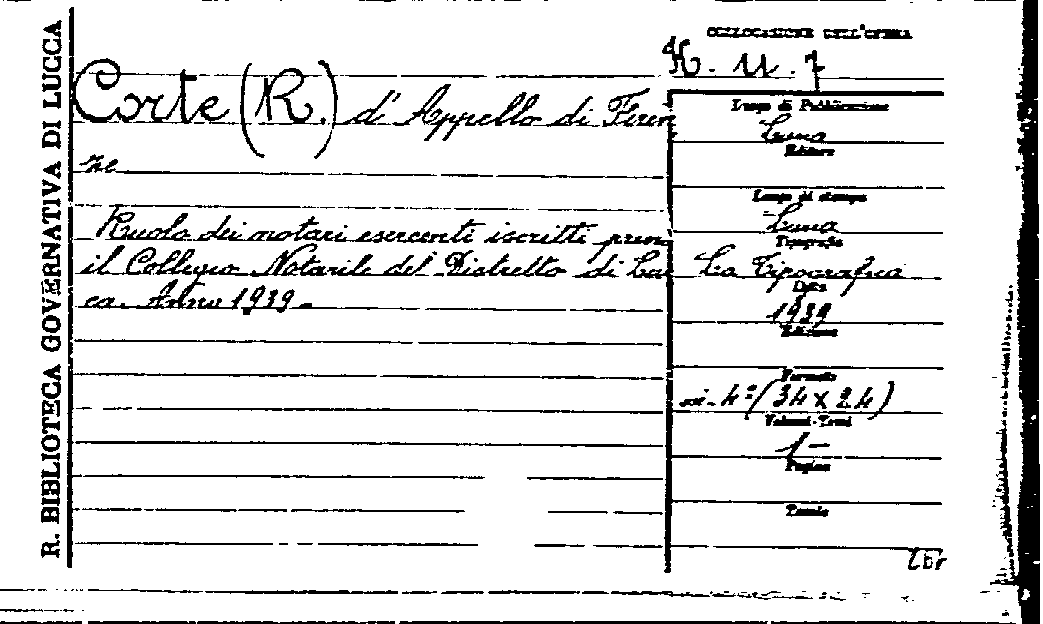 R. BIBLIOTECA GOVERNATIVA DI LUCCA
COLLOCAZIONE DELL'OPERA
K. U. 7
Corte (R.) d'Appello di Firen
ze
Ruolo dei notari esercenti iscritti presso
il Collegio Notarile del Distretto di Luc
ca. Anno 1939.-
Luogo di Pubblicazione
Lucca
Editore
Luogo di stampa
Lucca
Tipografia
La Tipografica
Data
1939
Edizione
Formato
in-4º (34 x 24)
Volumi-Tomi
1-
Pagine
Tavole